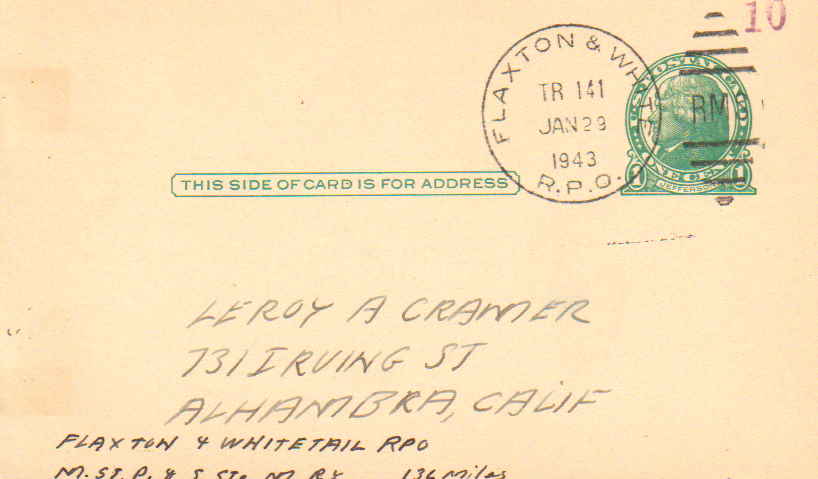 10
FLAXTON & WHITE
TR 141
JAN 29
1943
R.P.O.
RM
U.S. POSTAL CARD
ONE CENT
1 JEFFERSON 1
THIS SIDE OF CARD IS FOR ADDRESS
LEROY A CRAMER
731 IRVING ST
ALHAMBRA, CALIF
FLAXTON & WHITETAIL RPO
M. ST. P. & S STe M RY 136 Miles